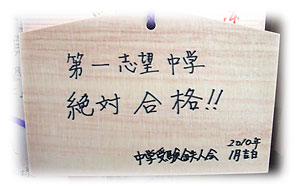 第一志望中学
絶対合格!!
2010年
中学受験鉄人会 1月吉日